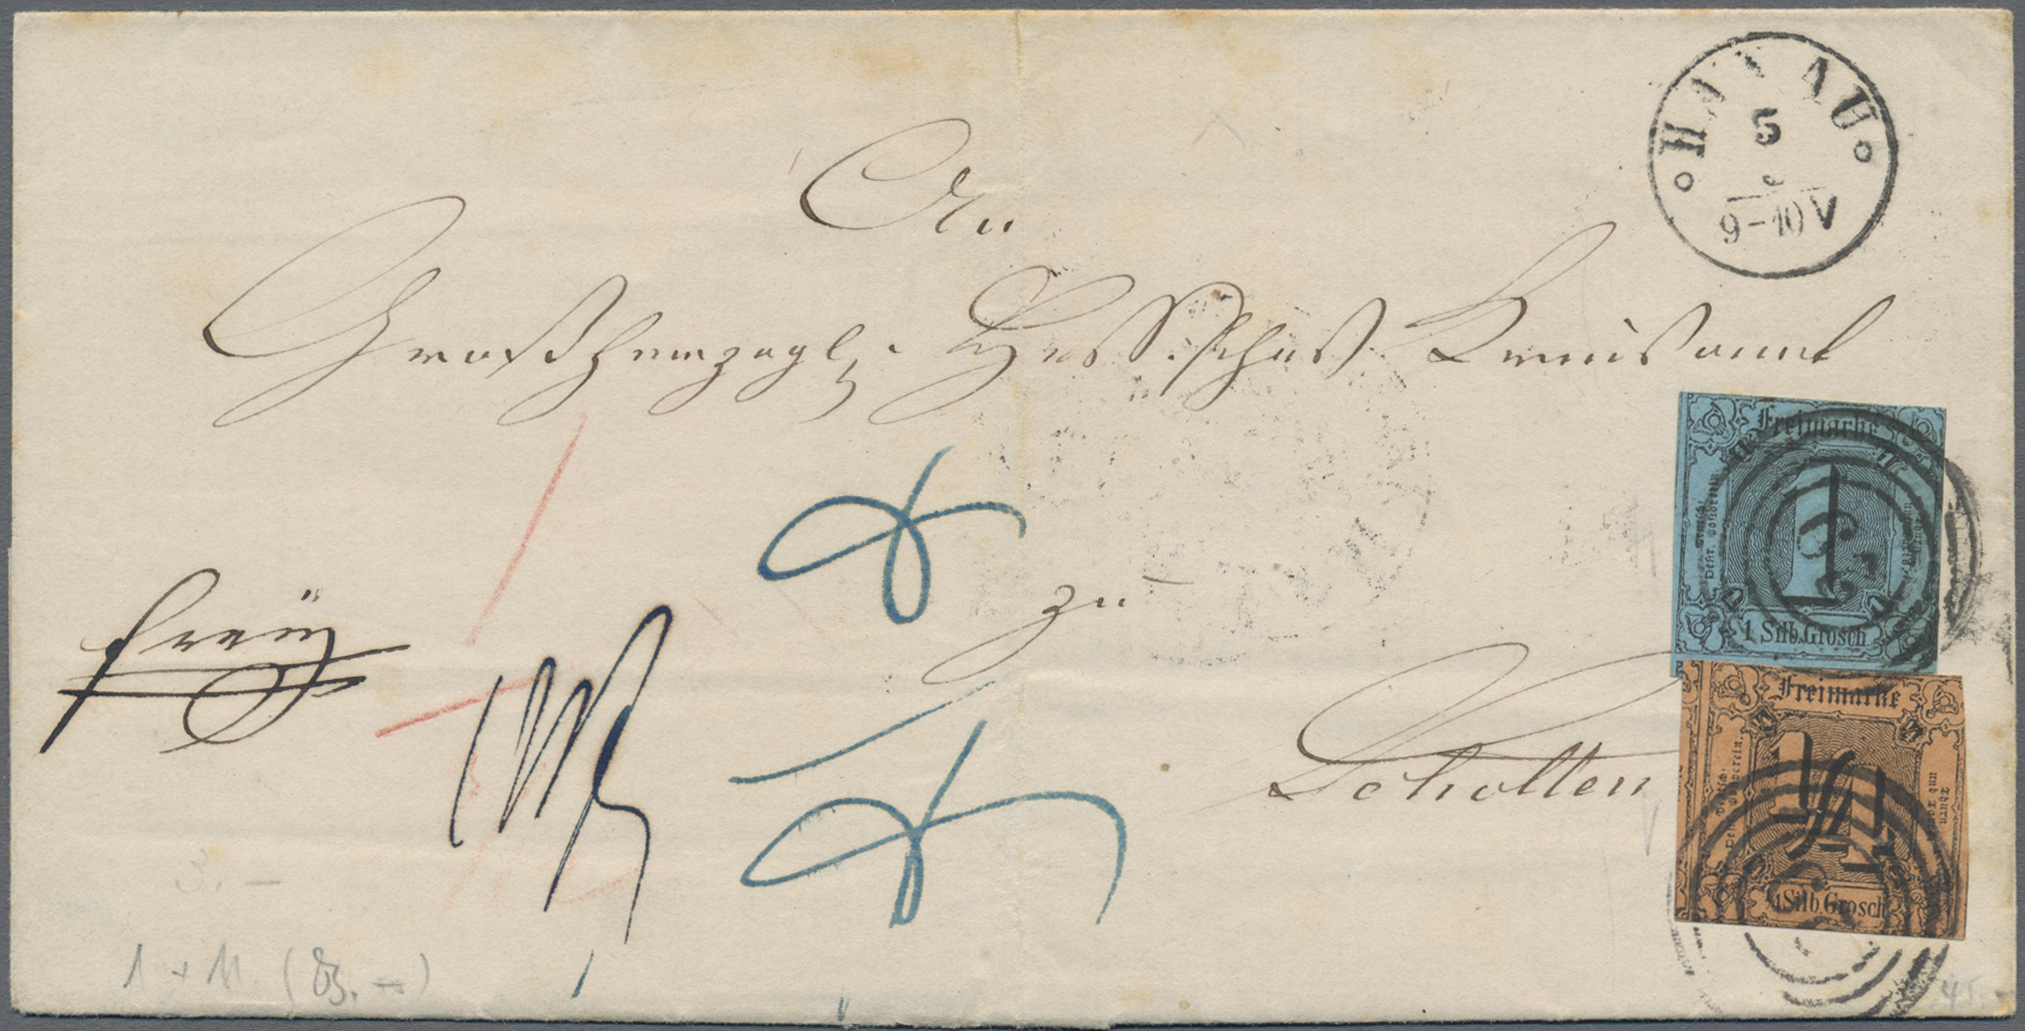 HANAU
5
9-10V
An
Großherzogl. Hessisches Kreisamt
zu
Schotten
frei
Freimarke
1
1 Silb. Grosch
Freimarke
1/4
1/4 Silb. Grosch
3. —
1 + 11 (83. —)
45.-